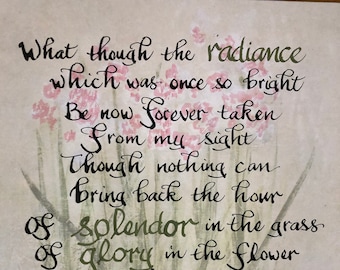 What though the radiance
which was once so bright
Be now forever taken
From my sight
Though nothing can
Bring back the hour
Of splendor in the grass
Of glory in the flower